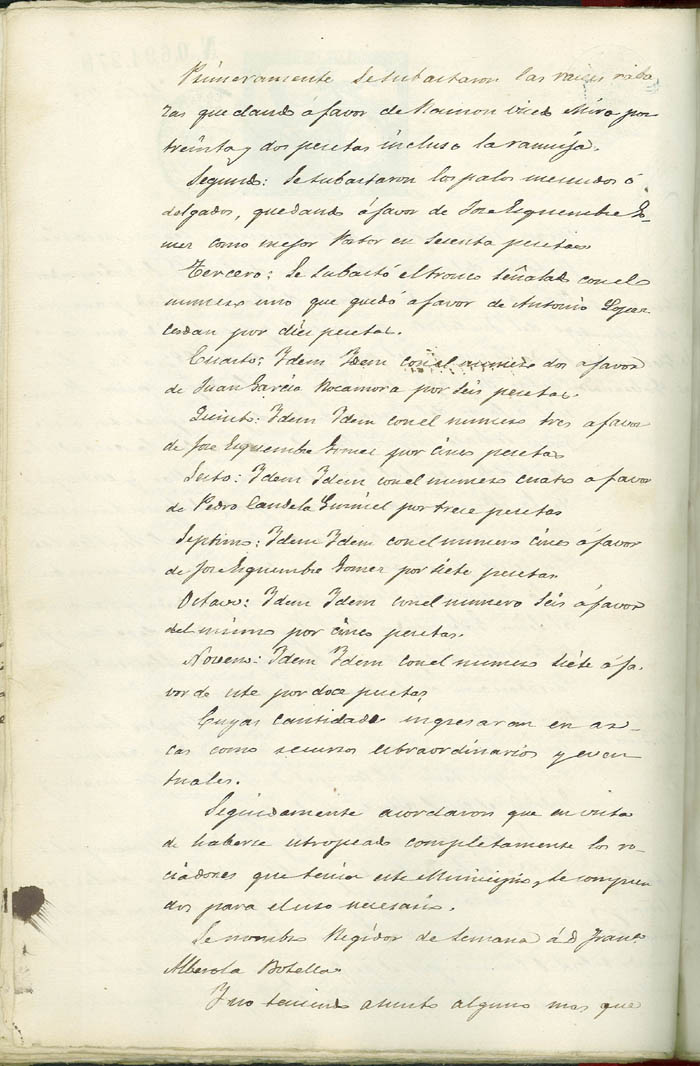 Primeramente se subastaron las raices
ras quedando á favor de Ramon Mira por
treinta y dos pesetas incluso la ramija.
Segundo: Se subastaron los palos menudos ó
delgados, quedando á favor de Jose Esquembre Go-
mez como mejor Postor en sesenta pesetas
Tercero: Se subastó el tronco señalado con el
numero uno que quedó a favor de Antonio
por diez pesetas.
Cuarto: Idem Idem con el numero dos a favor
de Juan Garcia Rocamora por seis pesetas.
Quinto: Idem Idem con el numero tres a favor
de Jose Esquembre Gomez por cinco pesetas
Sesto: Idem Idem con el numero cuatro a favor
de Pedro Candela por trece pesetas
Septimo: Idem Idem con el numero cinco á favor
de Jose Esquembre Gomez por siete pesetas.
Octavo: Idem Idem con el numero seis á favor
del mismo por cinco pesetas.
Noveno: Idem Idem con el numero siete á fa-
vor de este por doce pesetas
Cuyas cantidades ingresaran en ar-
cas como recursos estraordinarios y even
tuales.
Seguidamente acordaron que en vista
de haberse estropeado completamente los ro-
ciadores que tenia este Municipio, se compren
dos para el uso necesario.
Se nombró Regidor de semana á D Franco
Alberola Botella
Y no teniendo asunto alguno mas que